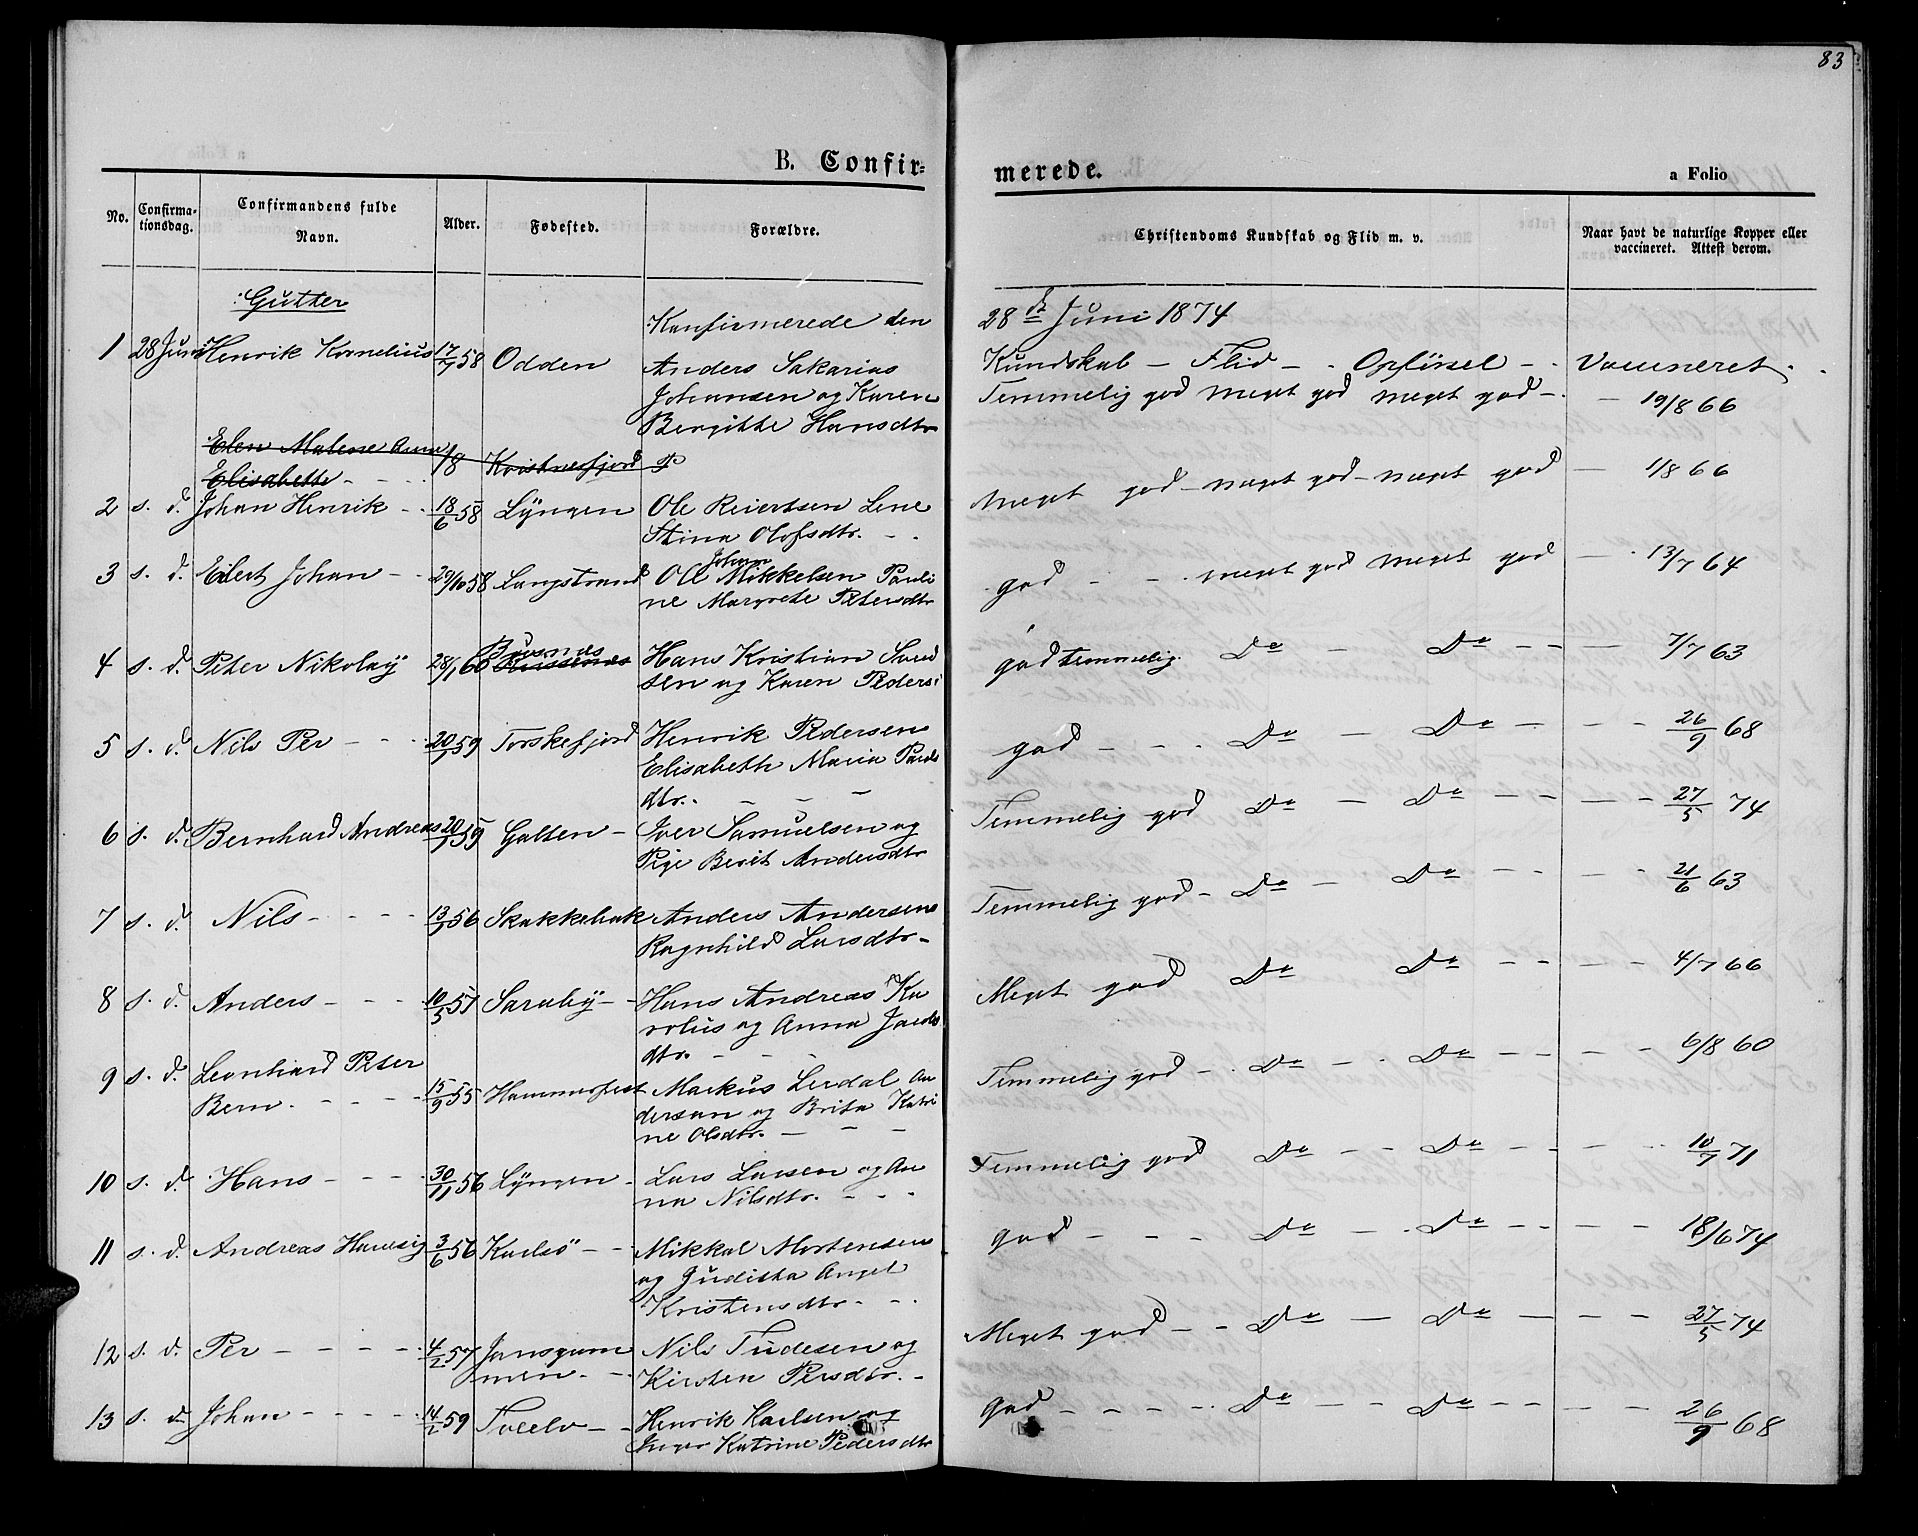 83
B. Confir=
merede.
a Folio
No.
Confirma-
tionsdag.
Confirmandens fulde
Navn.
Alder.
Fødested.
Forældre.
Christendoms Kundskab og Flid m. v.
Naar havt de naturlige Kopper eller
vaccineret. Attest derom.
Gutter
Konfirmerede den 28de Juni 1874
Kundskab – Flid – Opförsel – Vaccineret
1 28 Juni Henrik Kornelius 17/7 58 Odden Anders Sakarias
Johansen og Karen
Bergitte Hansdtr
Temmelig god meget god meget god – 19/8 66
Elen Malene Anna
Elisabeth
18 Kvisnesfjord P
2 s. d. Johan Henrik 18/6 58 Lÿngen Ole Reiertsen Lene
Stina Olofsdtr.
meget god – meget god – meget god – 1/8 66
3 s. d. Eilert Johan 29/10 58 Langstrand Ole Johan Mikkelsen Pauli
ne Margrete Petersdtr
god – – meget god meget god – 13/7 64
4 s. d. Peter Nikolaÿ 28/1 60 Büsnes
Hans Kristian
sen og Karen Peders
god temmelig. Do – Do – – 7/7 63
5 s. d. Nils Per 20/7 59 Torskefjord Henrik Pedersen
Elisabeth Maria Pauls
dtr.
god – – Do – Do – – 26/9 68
6 s. d. Bernhard Andreas 20/7 59 Galten – Iver Samuelsen og
Pige Berit Andersdtr
Temmelig god Do – Do – – 27/5 74
7 s. d. Nils – – – 13/7 56 Skakkebak Anders Andersen
Ragnhild Larsdtr –
Temmelig god – Do – Do – – 21/6 63
8 s. d. Anders – – – 10/5 57 Sarabÿ – Hans Andreas Ka
rolus og Anna Jacobs
dtr. – –
Meget god Do Do – – 4/7 66
9 s. d. Leonhard Peter
Bern. – – – 15/9 55 Hammerfest Markus Lerdal An
dersen og Brita Katri
ne Olsdtr. – – –
Temmelig god – Do – Do – – 6/8 60
10 s. d. Hans – – – 30/11 56 Lÿngen – Lars Larsen og An
na Nilsdtr. – – –
Temmelig god Do – – Do – – 10/7 71
11 s. d. Andreas Hansig 3/6 56 Karlsö – – Mikkal Mortensen
og Juditha Angel
Kristensdtr – –
god – – – Do – Do – – 18/6 74
12 s. d. Per – – – – 4/2 57 Jansgam
men. – Nils Tudesen og
Kirsten Persdtr. –
Meget god – – Do – Do – – 27/5 74
13 s. d. Johan – – – – 14/2 59 – – Henrik Karlsen og
Inger Katrine Pedersdtr
god – – – – Do – – Do – – 26/9 68